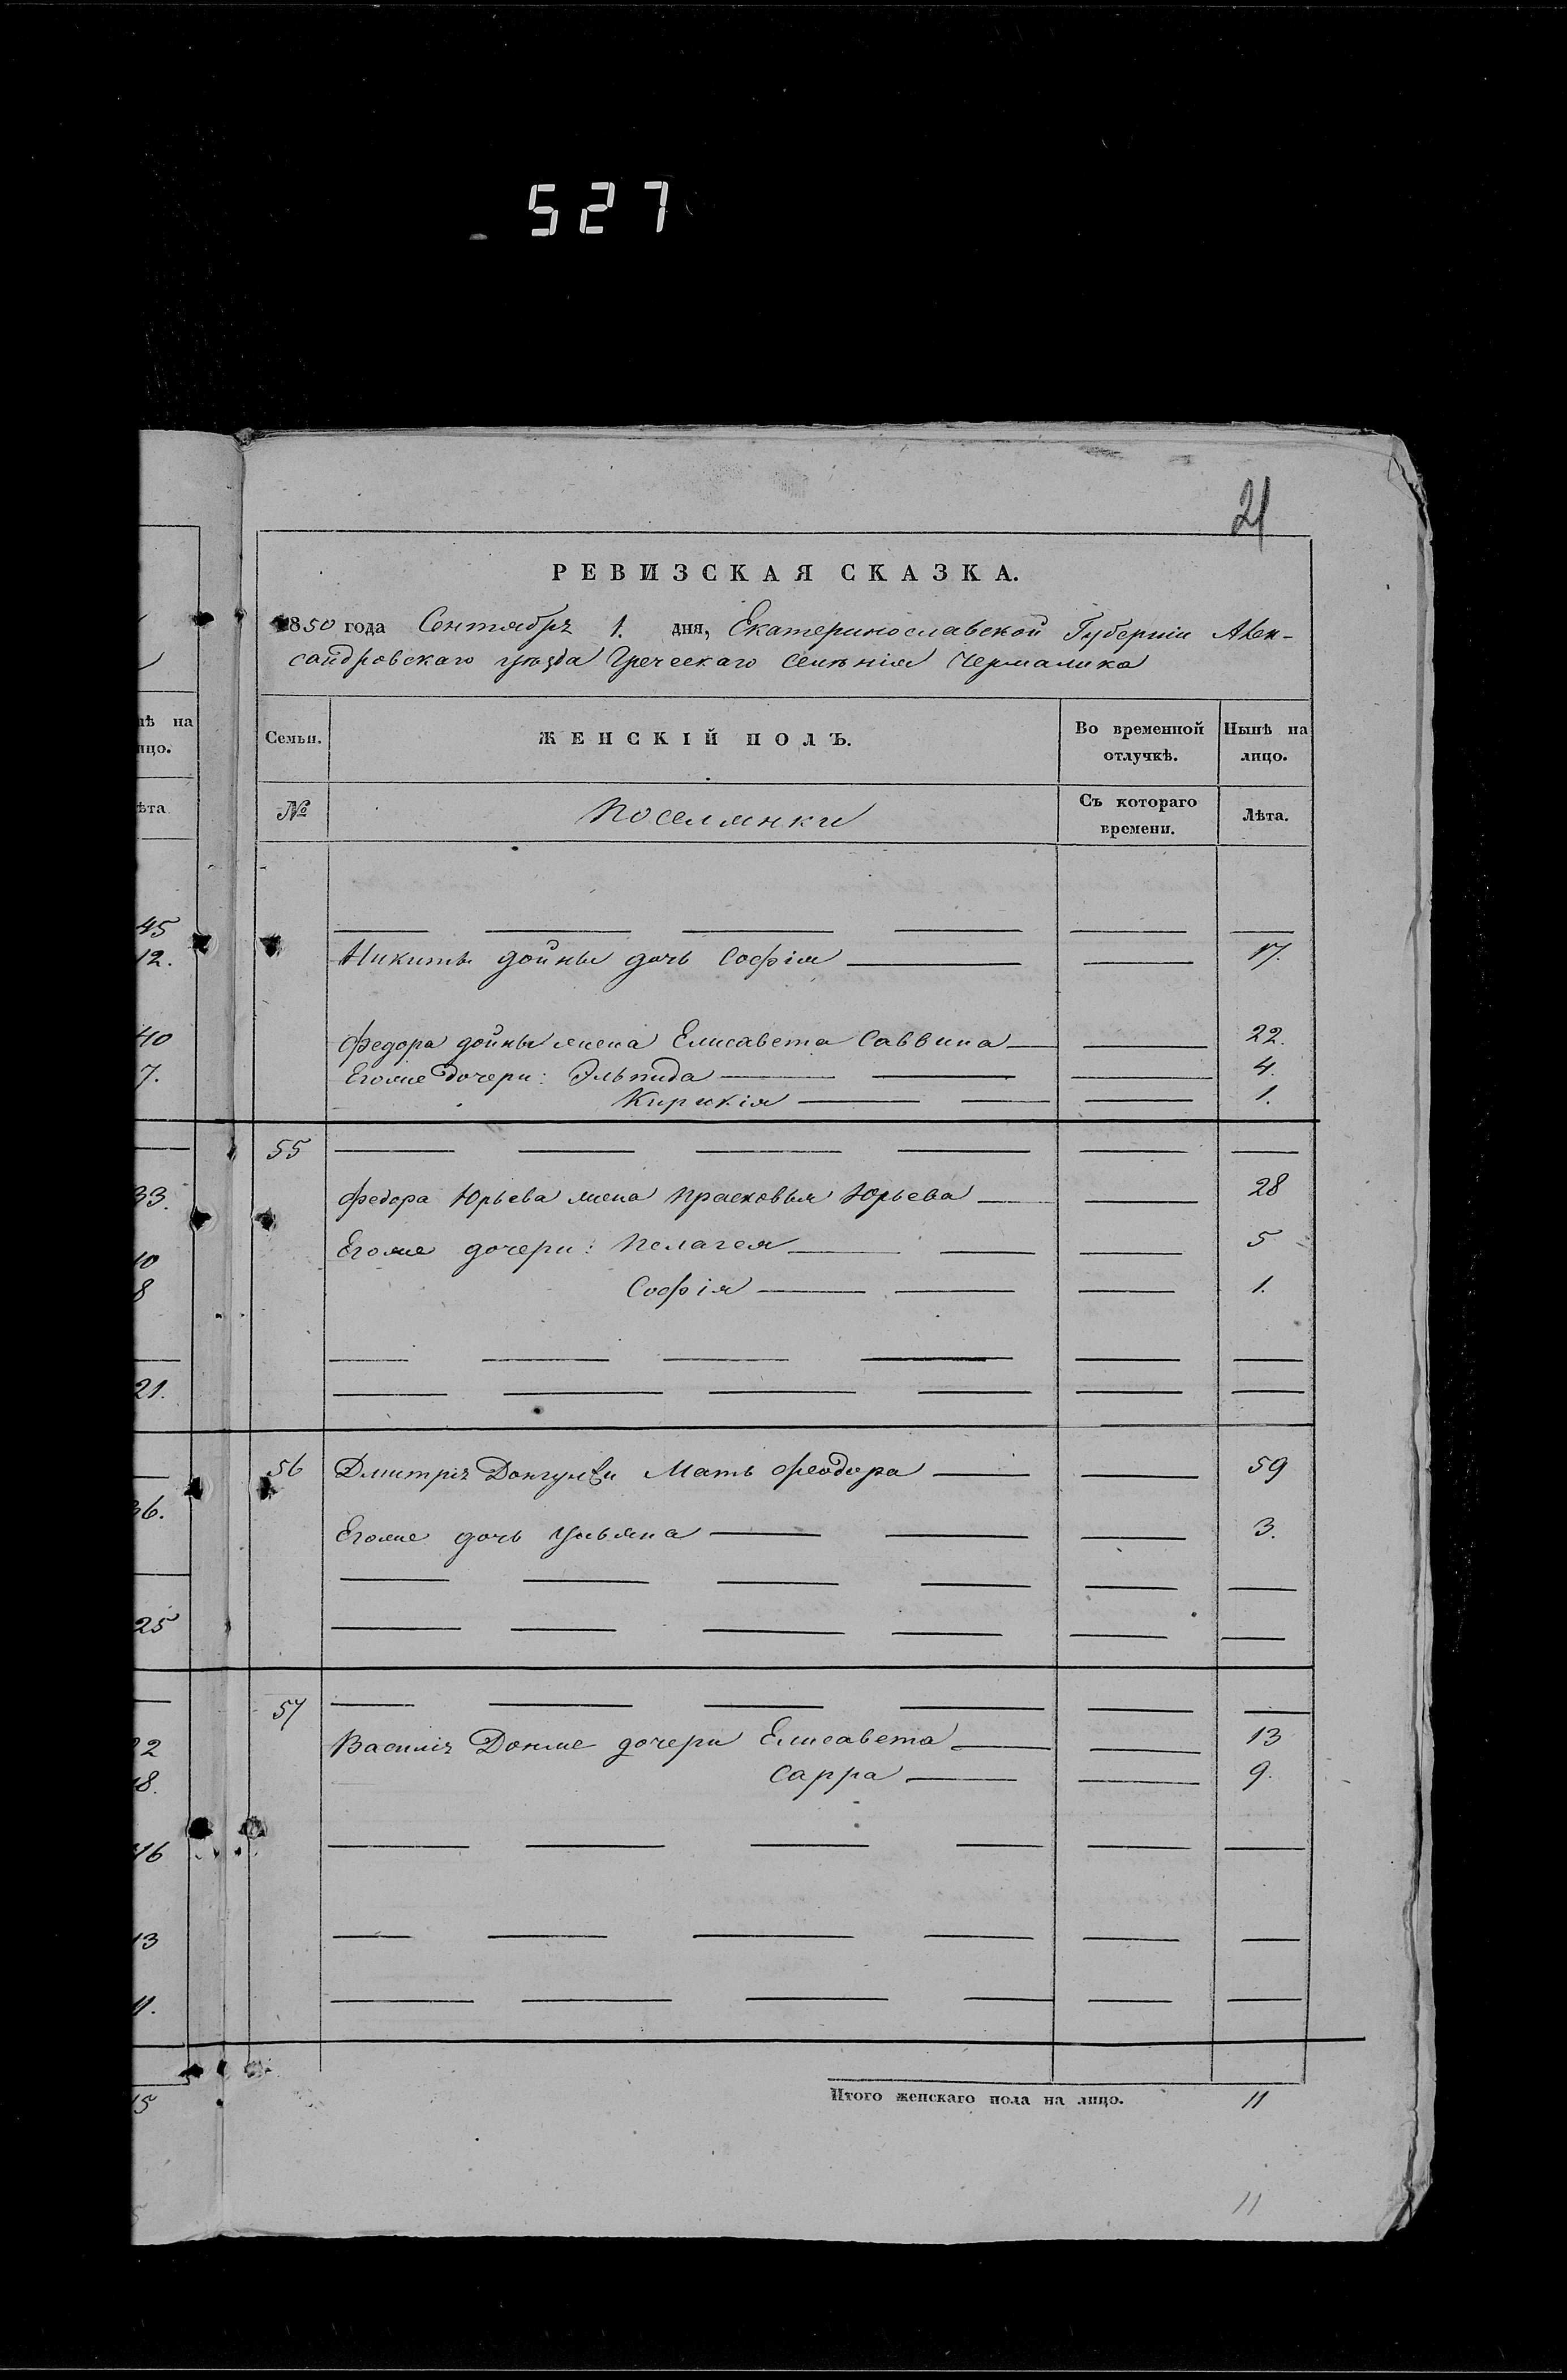 527
21
РЕВИЗСКАЯ СКАЗКА.
1850 года Сентября 1. дня, Екатеринославской Губерніи Алек-
сандровскаго уѣзда Греческаго селенія Чермалика
Семьи. ЖЕНСКІЙ ПОЛЪ. Во временной отлучкѣ. Нынѣ на лицо.
№ Поселянки Съ котораго времени. Лѣта.
Никиты Дойны дочь Софія 17.
Федора Дойны жена Елисавета Саввина 22.
Егоже дочери: Эльпида 4.
Кирикія 1.
55
Федора Юрьева жена Прасковья Юрьева 28
Егоже дочери: Пелагея 5
Софія 1.
56 Дмитрія Мать Феодора 59
Егоже дочь Ульяна 3.
57
Василія Донже дочери Елисавета 13
Сарра 9.
Итого женскаго пола на лицо. 11
11
ѣ на
ицо.
ѣта
45
12.
40
7.
33.
10
8
21.
36.
25
22
18.
46
13
11.
15